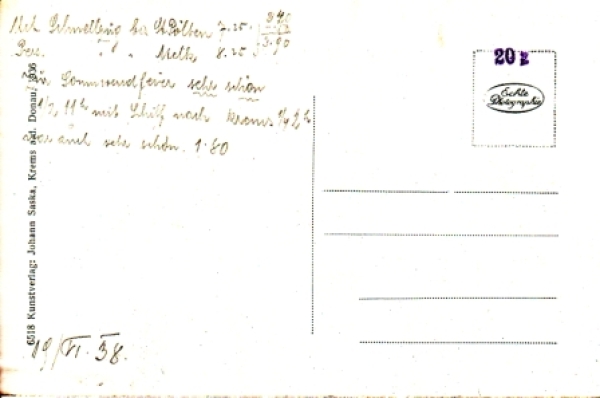 Schnellzug bis St Pölten 7.25
" " Melk 8.25
3.90
zur Sonnwendfeier sehr schön
½ 11h mit Schiff nach Krems ½ 2h
war auch sehr schön. 1.80
19/VI. 38.
6518 Kunstverlag: Johann Saska, Krems a.d. Donau, 1936
20 g
Echte
Photographie